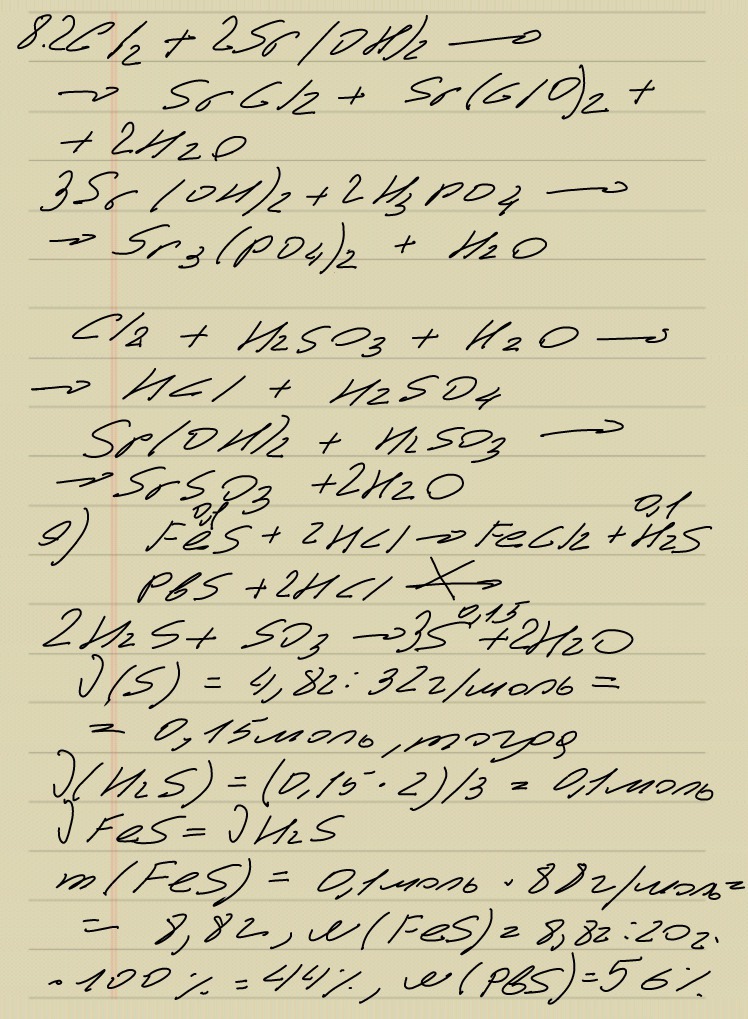 8. 2Cl2 + 2Sr(OH)2 →
→ SrCl2 + Sr(ClO)2 +
+ 2H2O
3Sr(OH)2 + 2H3PO4 →
→ Sr3(PO4)2 + H2O
Cl2 + H2SO3 + H2O →
→ HCl + H2SO4
Sr(OH)2 + H2SO3 →
→ SrSO3 + 2H2O
0,1 0,1
9) FeS + 2HCl → FeCl2 + H2S
PbS + 2HCl ↛
0,15
2H2S + SO3 → 3S + 2H2O
ν(S) = 4,8г : 32г/моль =
= 0,15моль, тогда
ν(H2S) = (0,15 · 2)/3 = 0,1моль
ν FeS = ν H2S
m(FeS) = 0,1моль · 88г/моль =
= 8,8г, w(FeS) = 8,8г : 20г ·
· 100% = 44%, w(PbS) = 56%